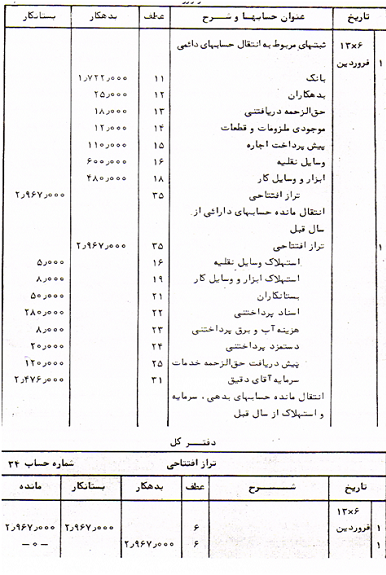 تاریخ عنوان حسابها و شرح عطف بدهکار بستانکار
۱۳×۶ ثبتهای مربوط به انتقال حسابهای دائمی
فروردین ۱
بانک ۱۱ ۱٫۷۲۲٫۰۰۰
بدهکاران ۱۲ ۲۵٫۰۰۰
حق‌الزحمه دریافتنی ۱۳ ۱۸٫۰۰۰
موجودی ملزومات و قطعات ۱۴ ۱۲٫۰۰۰
پیش پرداخت اجاره ۱۵ ۱۱۰٫۰۰۰
وسایل نقلیه ۱۶ ۶۰۰٫۰۰۰
ابزار و وسایل کار ۱۸ ۴۸۰٫۰۰۰
تراز افتتاحی ۳۵ ۲٫۹۶۷٫۰۰۰
انتقال مانده حسابهای دارائی از
سال قبل
۱ تراز افتتاحی ۳۵ ۲٫۹۶۷٫۰۰۰
استهلاک وسایل نقلیه ۱۶ ۵٫۰۰۰
استهلاک ابزار و وسایل کار ۱۹ ۸٫۰۰۰
بستانکاران ۲۱ ۵۰٫۰۰۰
اسناد پرداختنی ۲۲ ۲۸۰٫۰۰۰
هزینه آب و برق پرداختنی ۲۳ ۸٫۰۰۰
دستمزد پرداختنی ۲۴ ۲۰٫۰۰۰
پیش دریافت حق‌الزحمه خدمات ۲۵ ۱۲۰٫۰۰۰
سرمایه آقای دقیق ۳۱ ۲٫۴۷۶٫۰۰۰
انتقال مانده حسابهای بدهی ، سرمایه
و استهلاک از سال قبل
دفتر کل
تراز افتتاحی شماره حساب ۳۴
تاریخ شرح عطف بدهکار بستانکار مانده
۱۳×۶
فروردین ۱ ۶ ۲٫۹۶۷٫۰۰۰ ۲٫۹۶۷٫۰۰۰
۱ ۶ ۲٫۹۶۷٫۰۰۰ -۰-